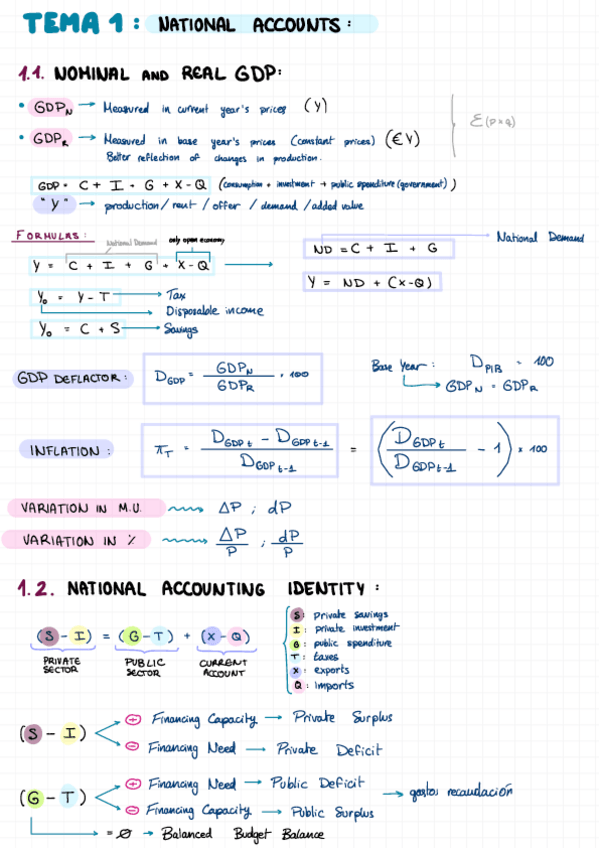 TEMA 1: NATIONAL ACCOUNTS:
1.1. NOMINAL AND REAL GDP:
• GDP_N → Measured in current year's prices (Y)
• GDP_R → Measured in base year's prices (constant prices) (€Y)
Better reflection of changes in production.
Ɛ(P×Q)
GDP = C + I + G + X - Q (consumption + investment + public spenditure (government))
"Y" → production / rent / offer / demand / added value
FORMULAS:
National Demand
only open economy
Y = C + I + G + X - Q →
ND = C + I + G
National Demand
Y = ND + (X-Q)
Y_D = Y - T → Tax
→ Disposable income
Y_D = C + S → Savings
GDP DEFLACTOR: D_GDP = GDP_N / GDP_R · 100
Base Year: D_PIB = 100
→ GDP_N = GDP_R
INFLATION: π_T = (D_GDP t - D_GDP t-1) / D_GDP t-1 = (D_GDP t / D_GDP t-1 - 1) × 100
VARIATION IN M.U. → ΔP ; dP
VARIATION IN % → ΔP/P ; dP/P
1.2. NATIONAL ACCOUNTING IDENTITY:
(S - I) = (G - T) + (X - Q)
PRIVATE SECTOR
PUBLIC SECTOR
CURRENT ACCOUNT
S: Private savings
I: private investment
G: public spenditure
T: taxes
X: exports
Q: imports
(S - I)
⊕ Financing Capacity → Private Surplus
⊖ Financing Need → Private Deficit
(G - T)
⊕ Financing Need → Public Deficit → gastos recaudación
⊖ Financing Capacity → Public Surplus
= Ø → Balanced Budget Balance